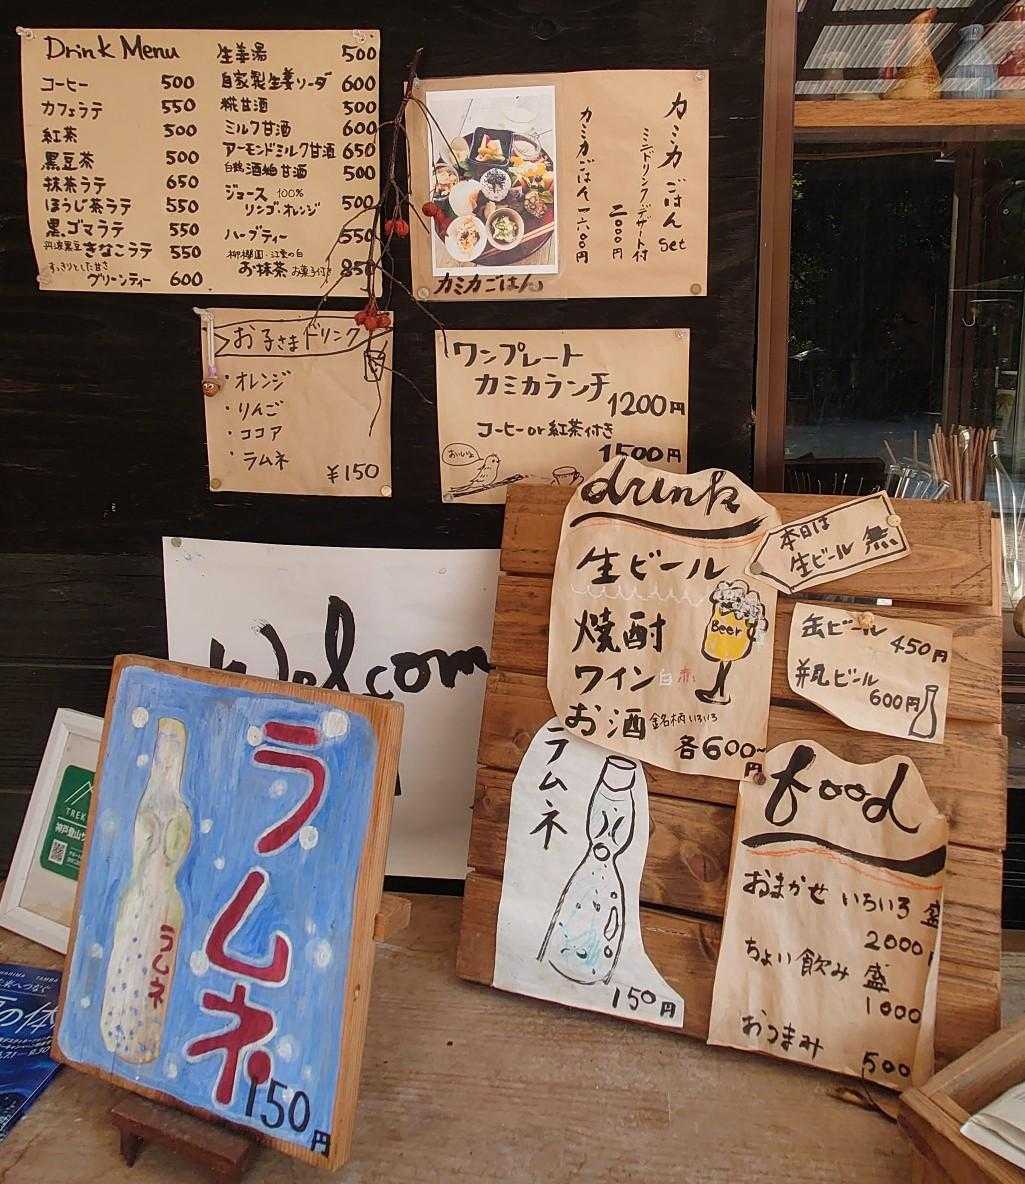 Drink Menu
コーヒー 500
カフェラテ 550
紅茶 500
黒豆茶 500
抹茶ラテ 650
ほうじ茶ラテ 550
黒ゴマラテ 550
丹波黒豆きなこラテ 550
すっきりとした甘さ
グリーンティー 600
生姜湯 500
自家製生姜ソーダ 600
糀甘酒 500
ミルク甘酒 600
アーモンドミルク甘酒 650
白鶴酒粕甘酒 500
ジュース 100%
リンゴ・オレンジ 500
ハーブティー 550
お抹茶 お菓子付き 850
カミカごはん Set
ミニドリンクデザート付
二000円
カミカごはん 一六00円
カミカごはん
お子さまドリンク
・オレンジ
・りんご
・ココア
・ラムネ
¥150
ワンプレート
カミカランチ
1200円
コーヒーor紅茶付き
1500円
おいしいよ
drink
生ビール
焼酎
ワイン 白 赤
お酒 銘柄いろいろ
各600~
円
Beer
本日は
生ビール 無
缶ビール
450円
瓶ビール
600円
Welcom
ラムネ
150円
food
おまかせ いろいろ 盛
2000円
ちょい飲み 盛
1000
おつまみ
500
ラムネ
ラムネ
150円
TREK
神戸登山サ